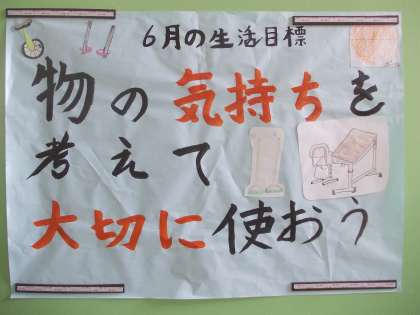 6月の生活目標
物の気持ちを
考えて
大切に使おう